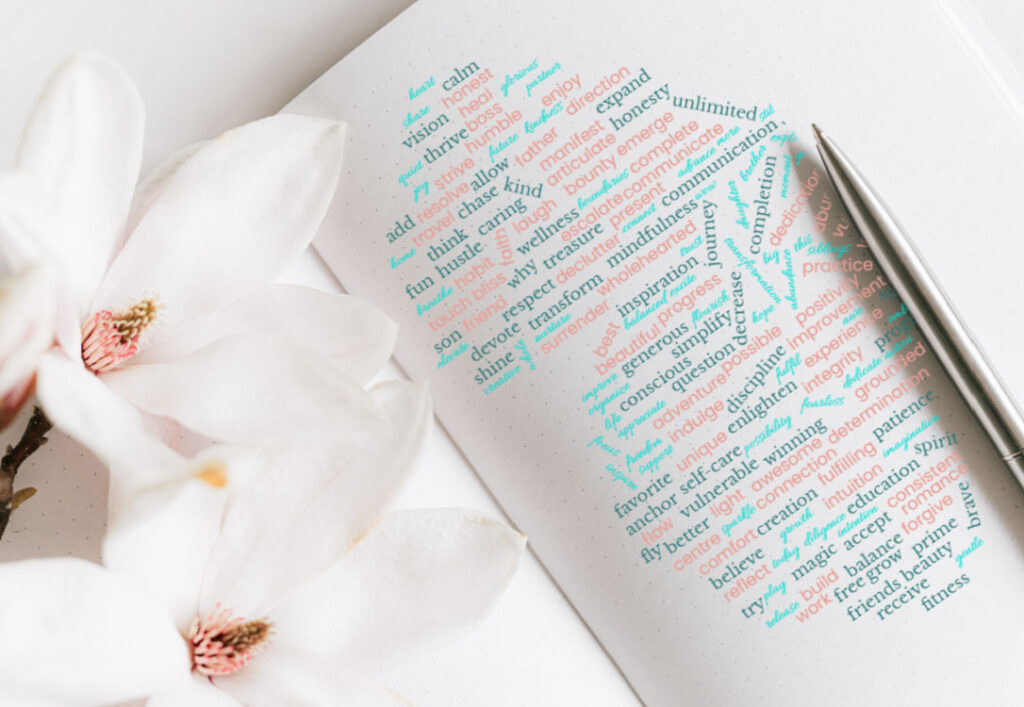 heart calm
share honest
vision heal
glorious partner
quiet thrive boss
joy strive humble
future kindness enjoy
resolve allow
father direction
add travel chase kind
manifest expand
articulate honesty
home think caring
laugh bounty emerge unlimited
fun hustle faith
wellness boundaries complete
escalate communicate
breathe habit why treasure
connect present advance more
touch bliss declutter communication
son friend respect
mindfulness wow
elevate devote transform wholehearted
shine nurture surrender
creative
inspiration trust journey
daughter brother completion
moment dedication
best balanced excite
beautiful progress
transformation
abundance this siblings
practice
improve generous flourish
organize simplify decrease
hope positivity
life conscious question possible
improvement
appreciate adventure
discipline fulfil experience
indulge enlighten integrity
freedom support
unique possibility fearless
dedicate
grounded
inspire
favorite self-care winning
determination
anchor vulnerable awesome
patience
flow light connection fulfilling
imagination
fly better sparkle creation
intuition education spirit
centre comfort growth
diligence intention consistence
believe today
accept romance
reflect magic forgive
try play balance prime brave
release build free grow
work friends beauty gentle
receive fitness